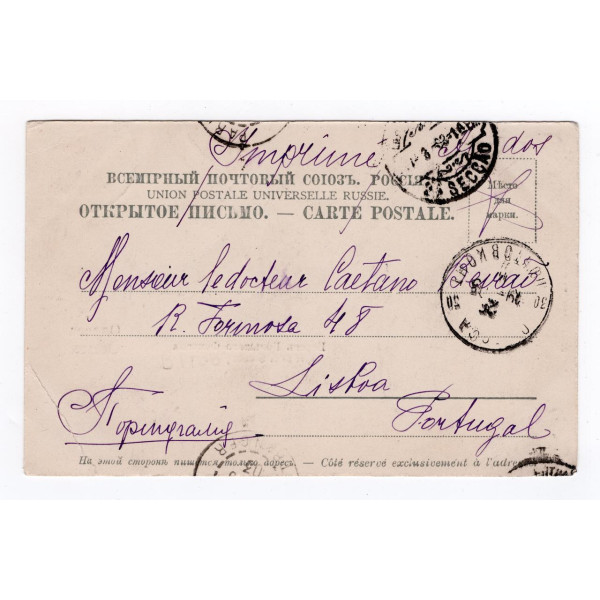 Imprimé au dos
ВСЕМІРНЫЙ ПОЧТОВЫЙ СОЮЗЪ. РОССІЯ.
UNION POSTALE UNIVERSELLE RUSSIE.
ОТКРЫТОЕ ПИСЬМО. — CARTE POSTALE.
Мѣсто
для
марки.
SECCAO
Monsieur le docteur Caetano
R. Formosa 48
Lisboa
Португалія
Portugal
На этой сторонѣ пишется только адресъ. — Côté réservé exclusivement à l'adresse